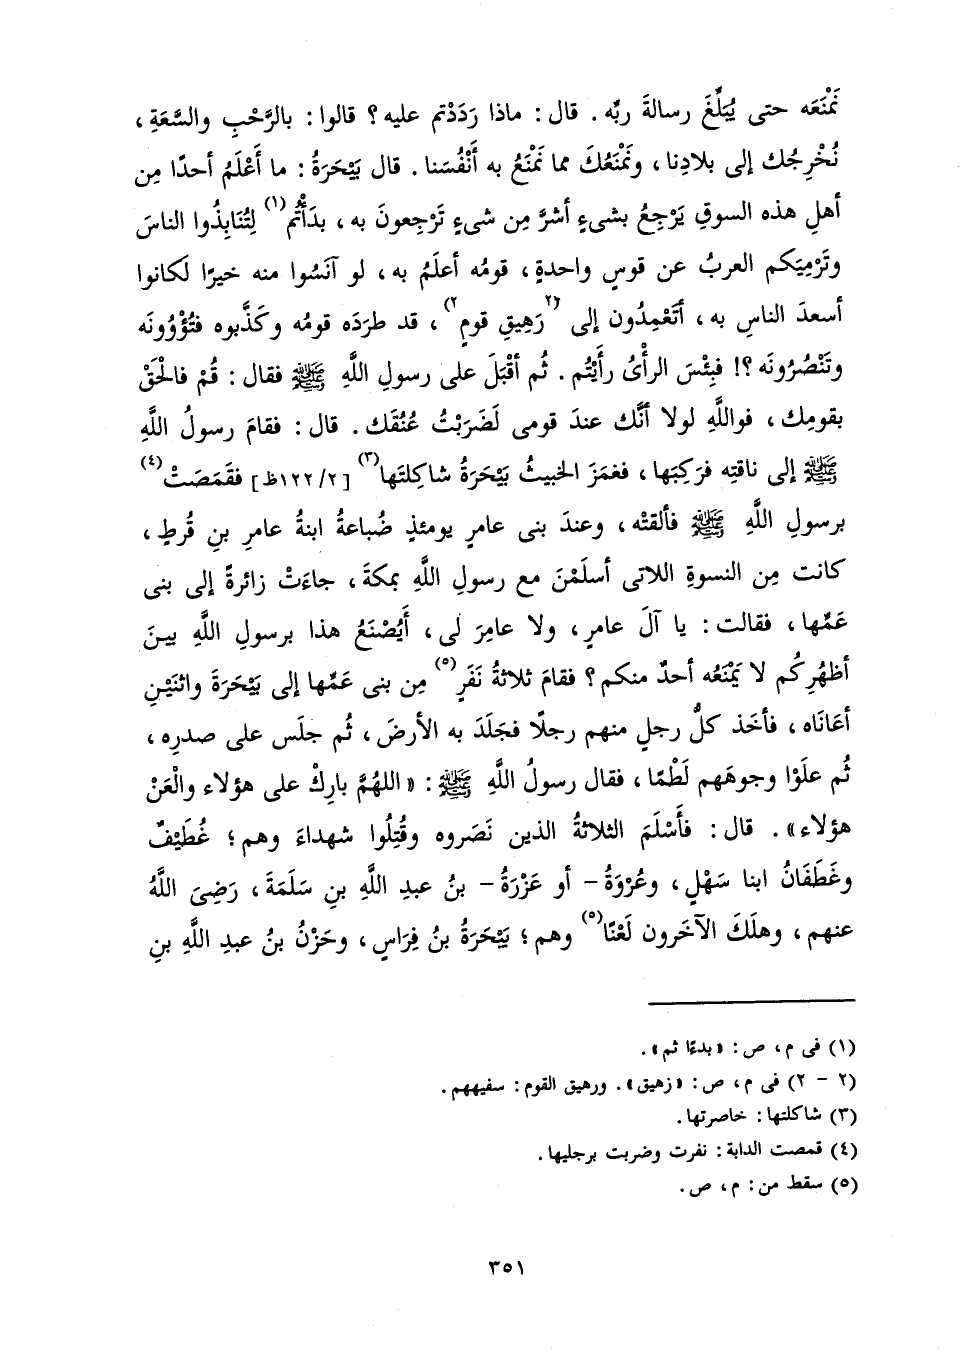 نَمْنَعَه حتى يُبَلِّغَ رسالةَ ربِّه . قال : ماذا رَدَدْتم عليه ؟ قالوا : بالرَّحْبِ والسَّعَةِ ،
نُخْرِجُك إلى بلادِنا ، ونَمْنَعُكَ مما نَمْنَعُ به أَنْفُسَنا . قال بَيْحَرَةُ : ما أَعْلَمُ أحدًا مِن
أهلِ هذه السوقِ يَرْجِعُ بشىءٍ أشرَّ مِن شىءٍ تَرْجِعونَ به ، بدَأْتُم(١) لِتُنَابِذُوا الناسَ
وتَرْمِيَكم العربُ عن قوسٍ واحدةٍ ، قومُه أعلَمُ به ، لو آنَسُوا منه خيرًا لَكانوا
أسعدَ الناسِ به ، أَتَعْمِدُون إلى (٢رَهِيقِ قومٍ٢) ، قد طرَدَه قومُه وكَذَّبوه فتُؤْوُونَه
وتَنْصُرُونَه ؟! فبِئْسَ الرأْىُ رأَيْتُم . ثُم أقْبَلَ على رسولِ اللَّهِ ﷺ فقال : قُمْ فالْحَقْ
بقومِك ، فواللَّهِ لولا أنَّك عندَ قومى لَضَرَبْتُ عُنُقَك . قال : فقامَ رسولُ اللَّهِ
ﷺ إلى ناقتِه فرَكِبَها ، فغمَزَ الخبيثُ بَيْحَرَةُ شاكِلتَها(٣) [ ٢/ ١٢٢ظ ] فقَمَصَتْ(٤)
برسولِ اللَّهِ ﷺ فألقتْه ، وعندَ بنى عامرٍ يومئذٍ ضُباعةُ ابنةُ عامرِ بنِ قُرطٍ ،
كانت مِن النسوةِ اللاتى أسلَمْنَ مع رسولِ اللَّهِ بمكةَ ، جاءَتْ زائرةً إلى بنى
عَمِّها ، فقالت : يا آلَ عامرٍ ، ولا عامِرَ لى ، أَيُصْنَعُ هذا برسولِ اللَّهِ بينَ
أظهُرِكُم لا يَمْنَعُه أحدٌ منكم ؟ فقامَ ثلاثةُ نَفَرٍ(٥) مِن بنى عَمِّها إلى بَيْحَرَةَ واثنَيْنِ
أعَانَاه ، فأخَذ كلُّ رجلٍ منهم رجلًا فجَلَدَ به الأرضَ ، ثُم جلَس على صدرِه ،
ثُم علَوْا وجوهَهم لَطْمًا ، فقال رسولُ اللَّهِ ﷺ : « اللهُمَّ بارِكْ على هؤلاء والْعَنْ
هؤلاء » . قال : فأَسْلَمَ الثلاثةُ الذين نَصَروه وقُتِلُوا شهداءَ وهم ؛ غُطَيْفٌ
وغَطَفَانُ ابنا سَهْلٍ ، وعُرْوَةُ - أو عَزْرَةُ - بنُ عبدِ اللَّهِ بنِ سَلَمَةَ ، رَضِىَ اللَّهُ
عنهم ، وهلَكَ الآخَرون لَعْنًا(٥) وهم ؛ بَيْحَرَةُ بنُ فِرَاسٍ ، وحَزْنُ بنُ عبدِ اللَّهِ بنِ
(١) فى م ، ص : « بدءًا ثم » .
(٢ - ٢) فى م ، ص : « زهيق » . ورهيق القوم : سفيههم .
(٣) شاكلتها : خاصرتها .
(٤) قمصت الدابة : نفرت وضربت برجليها .
(٥) سقط من : م ، ص .
٣٥١